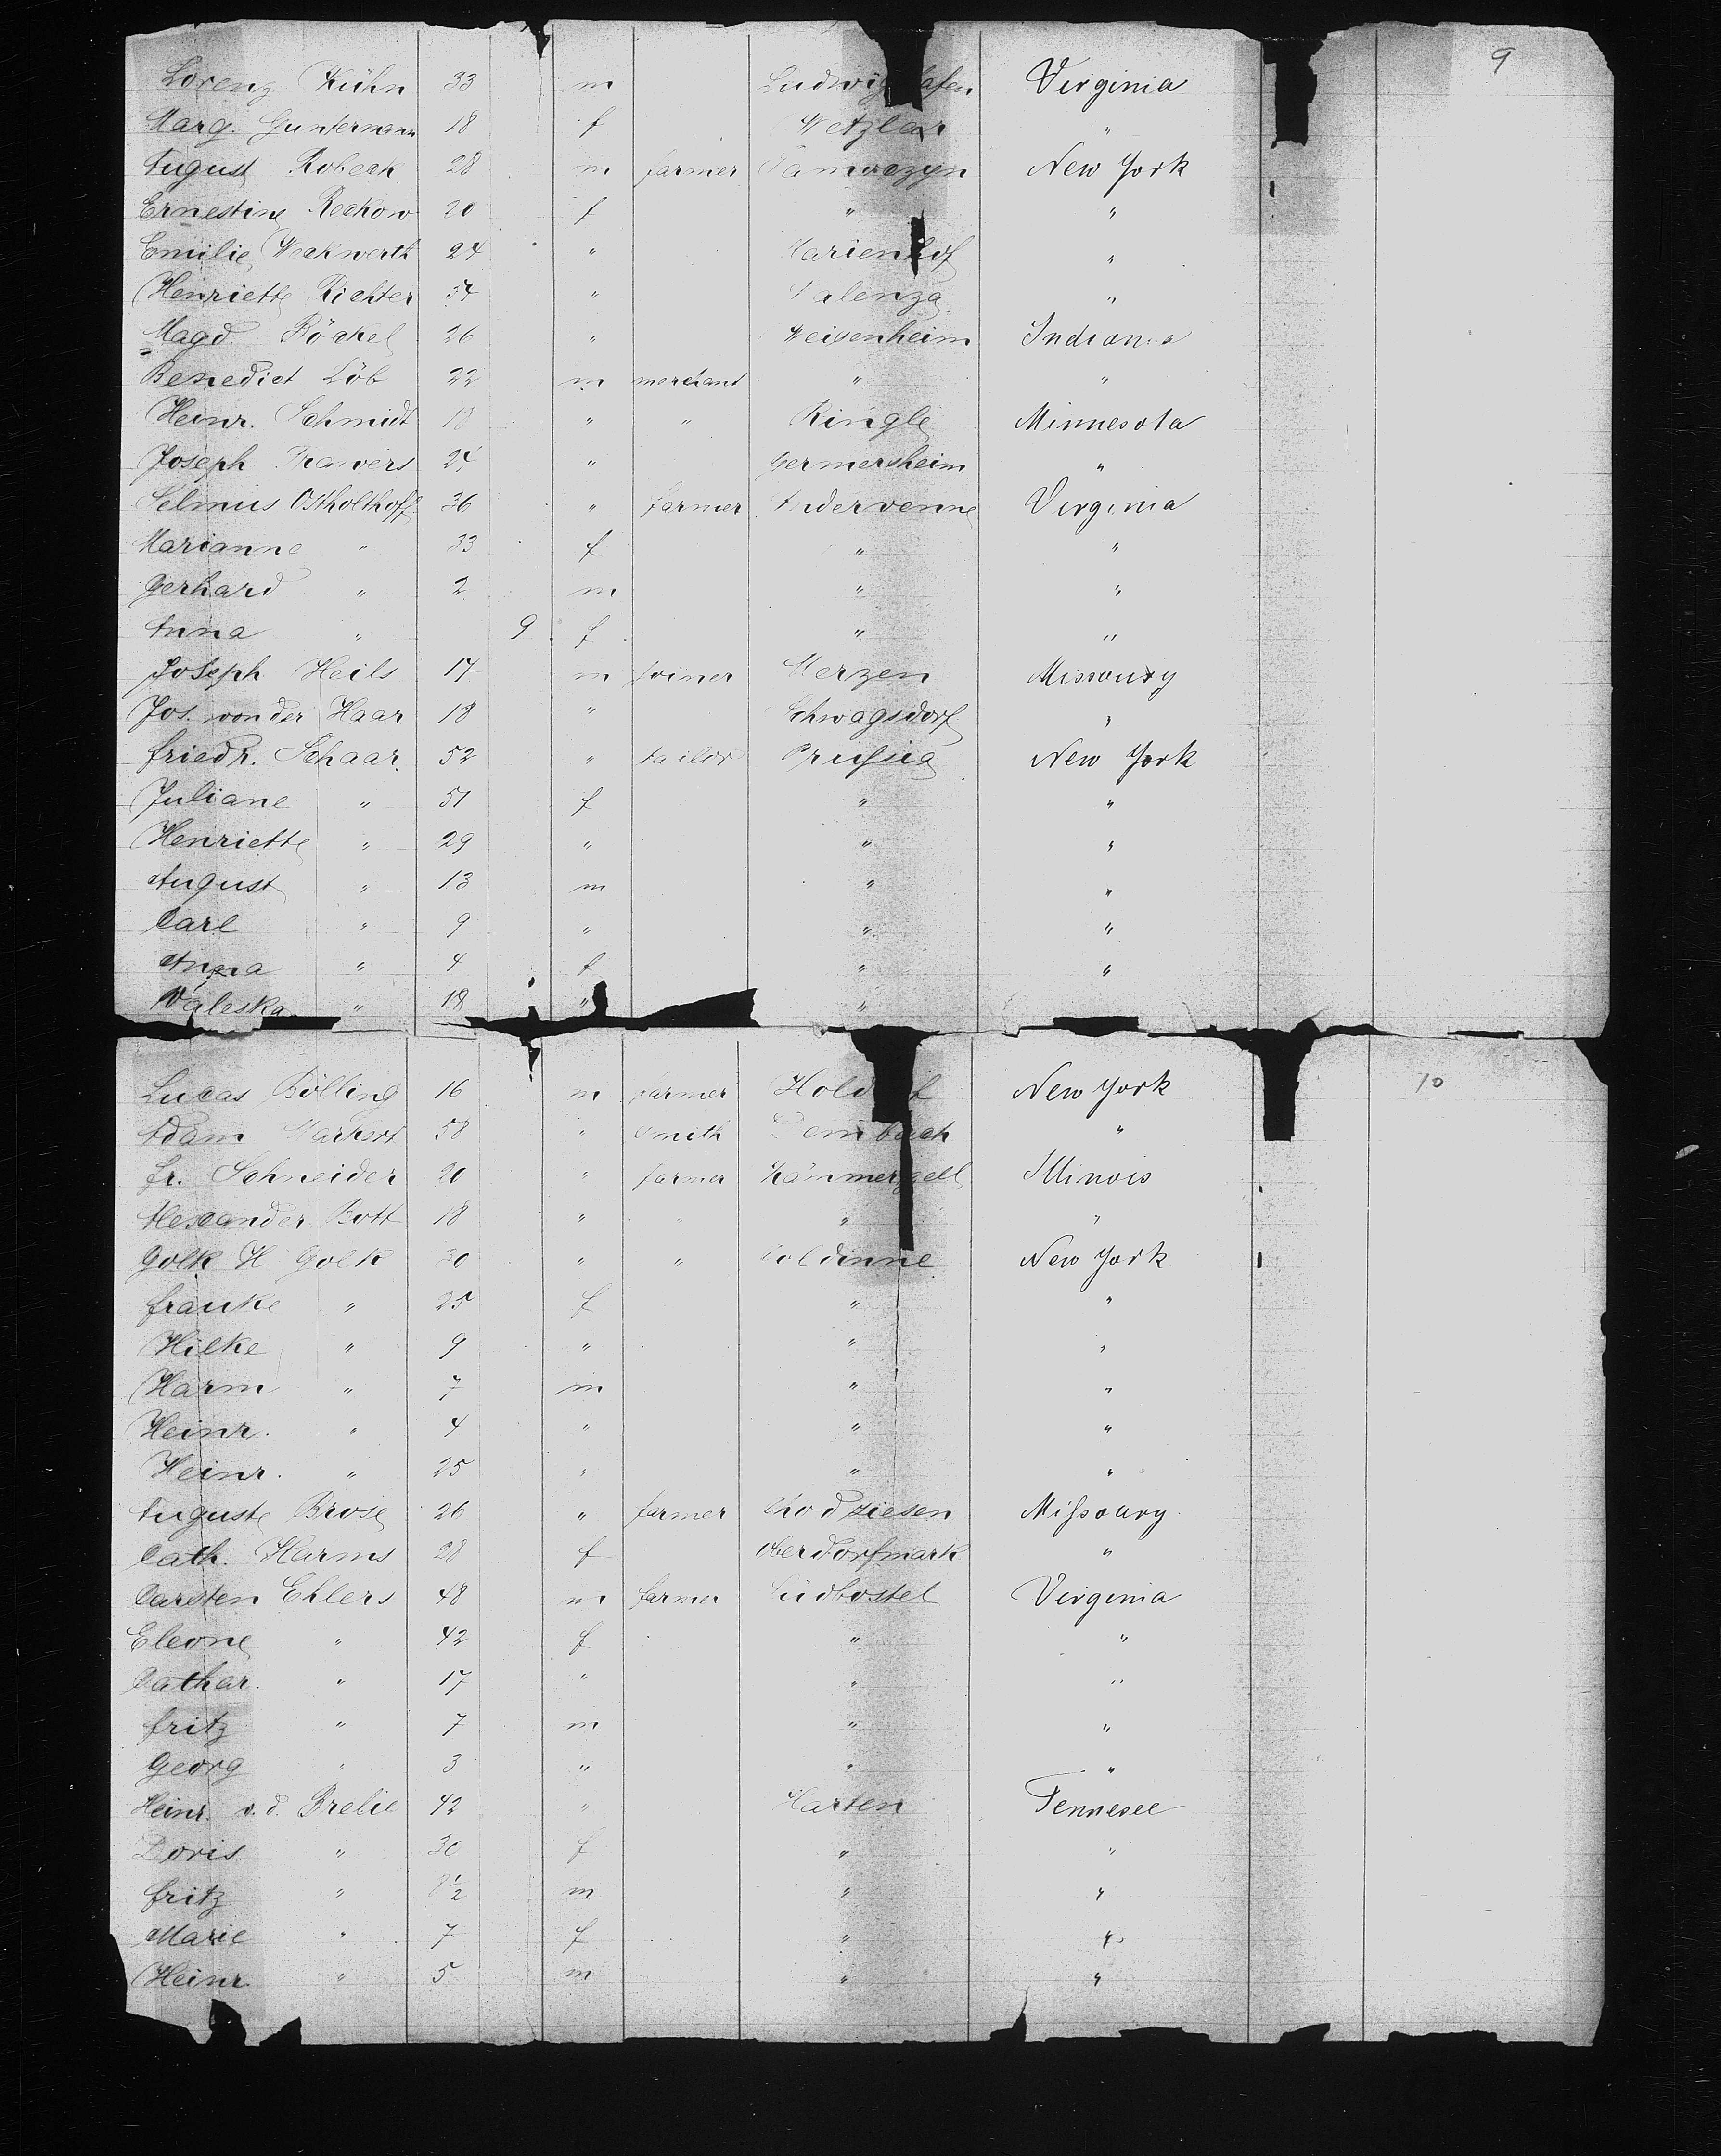 9
Lorenz Kühn 33 m Virginia
Marg. Guntermann 18 f Wetzlar "
August Robeck 28 m farmer New York
Ernestine Reckow 20 f " "
Emilie Weckwerth 24 " Marienhof "
Henriette Richter 34 " "
Magd. Böckel 26 " Weisenheim Indiana
Benedict Löb 22 m merchant " "
Heinr. Schmidt 18 " " Ringle Minnesota
Joseph 24 " Germersheim "
Selmus Ostholthoff 36 " farmer Andervenne Virginia
Marianne " 33 f " "
Gerhard " 2 m " "
Anna " 9 f " "
Joseph Heils 17 m joiner Merzen Missoury
Jos. von der Haar 18 " Schwagsdorf "
friedr. Schaar 52 " tailor Prussia New York
Juliane " 51 f " "
Henriette " 29 " " "
August " 13 m " "
Carl " 9 " " "
Anna " 4 f " "
Valeska " 18 " "
10
Lucas Bölling 16 m farmer New York
Adam Markert 58 " smith "
fr. Schneider 20 " farmer Kämmerzell Illinois
Alexander Bott 18 " " " "
Golk H Golk 30 " " New York
frauke " 25 f " "
Hilke " 9 " " "
Harm " 7 m " "
Heinr. " 4 " " "
Heinr. " 25 " " "
Auguste Brose 26 " farmer Chodziesen Missoury
Cath. Harms 28 f Oberdorfmark "
Carsten Ehlers 48 m farmer Südbostel Virginia
Eleone " 42 f " "
Cathar. " 17 " " "
fritz " 7 m " "
Georg " 3 " " "
Heinr. v. d. Brelie 42 " Harten Tennesee
Doris " 30 f " "
fritz " 8½ m " "
Marie " 7 f " "
Heinr. " 5 m " "